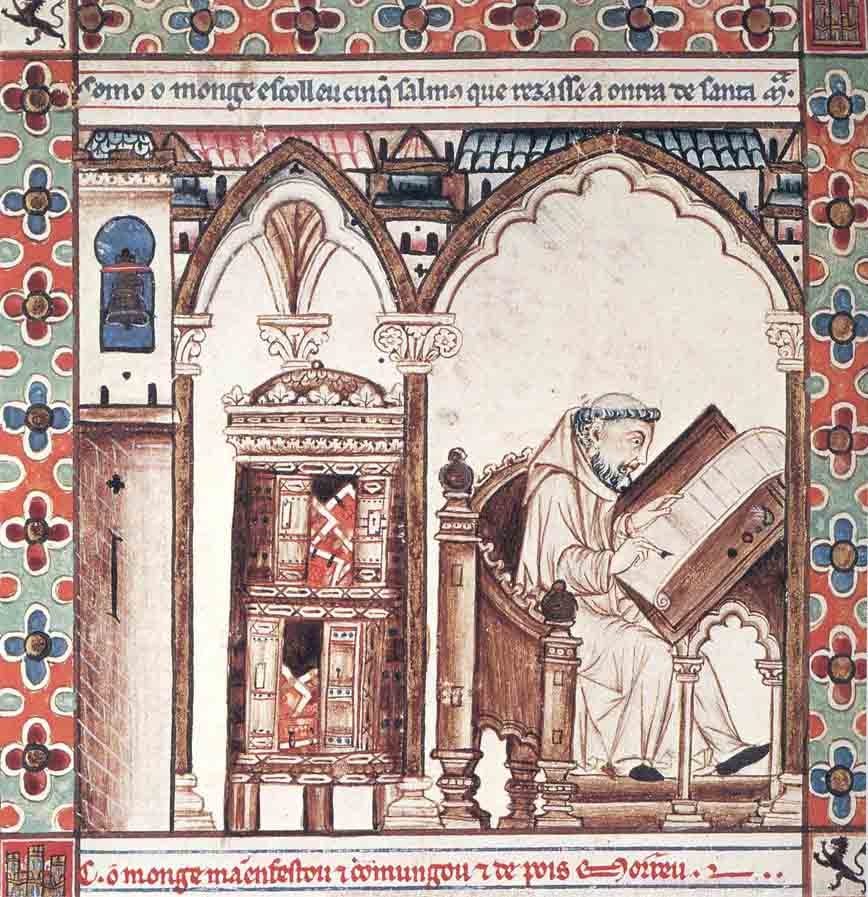 Como o monge escolleu cinq̃ salmos que rezasse a onrra de santa m̃ᵃ.
C. õ monge mãenfestou ⁊ cõmungou ⁊ de pois morreu.